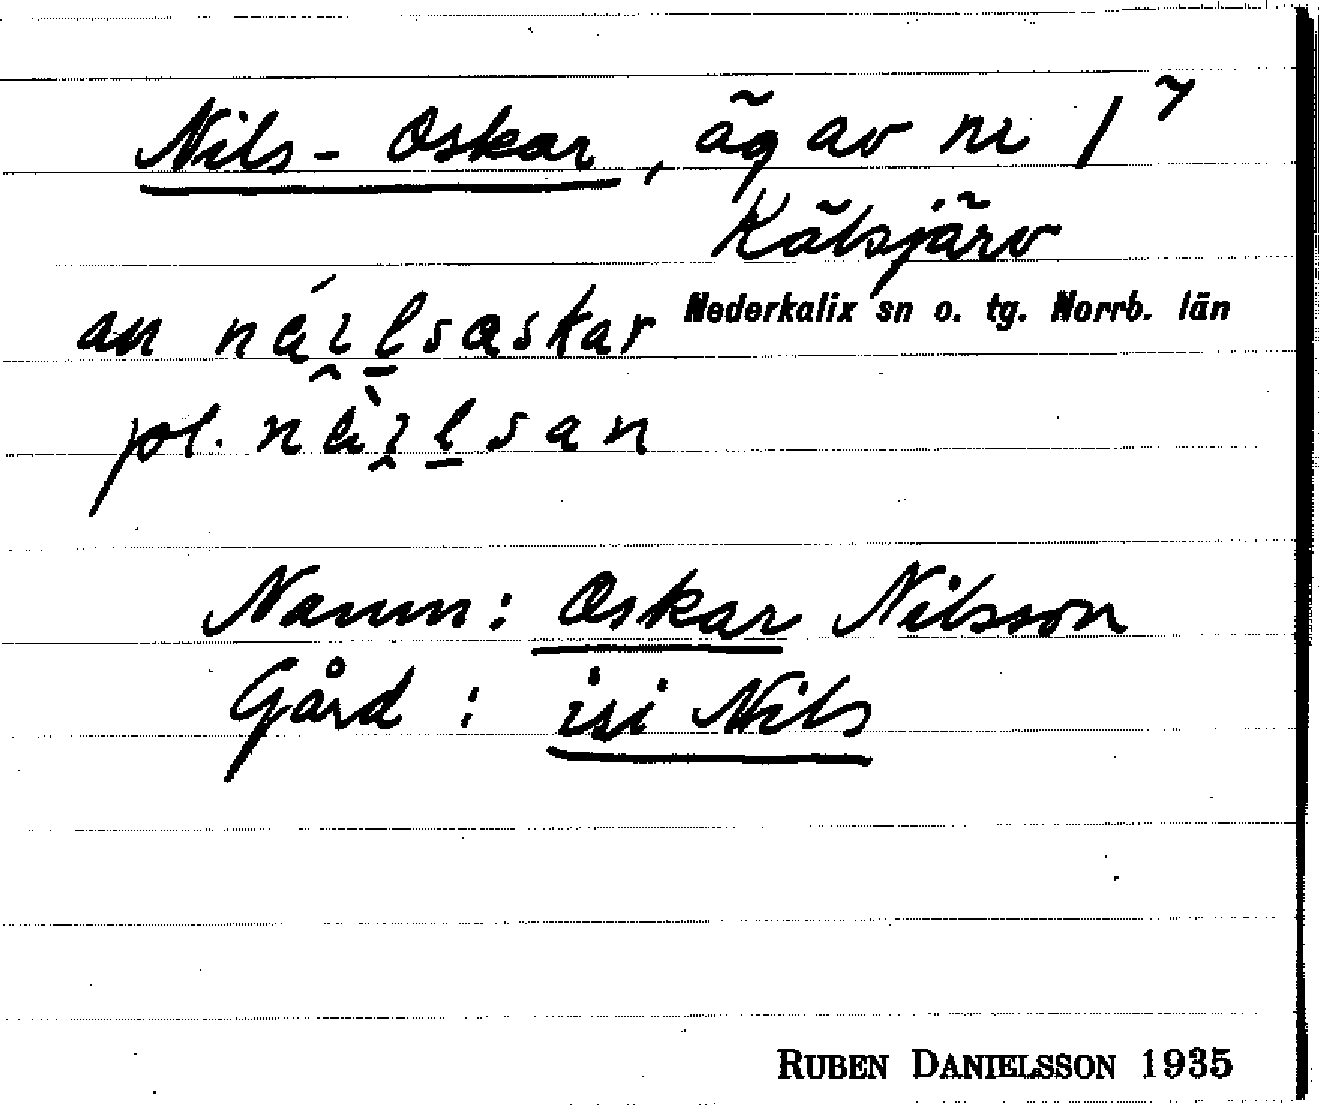 Nils-Oskar, äg av nr 1⁷
Kälsjärv
Nederkalix sn o. tg. Norrb. län
an
pl.
Namn: Oskar Nilsson
Gård: isi Nils
RUBEN DANIELSSON 1935